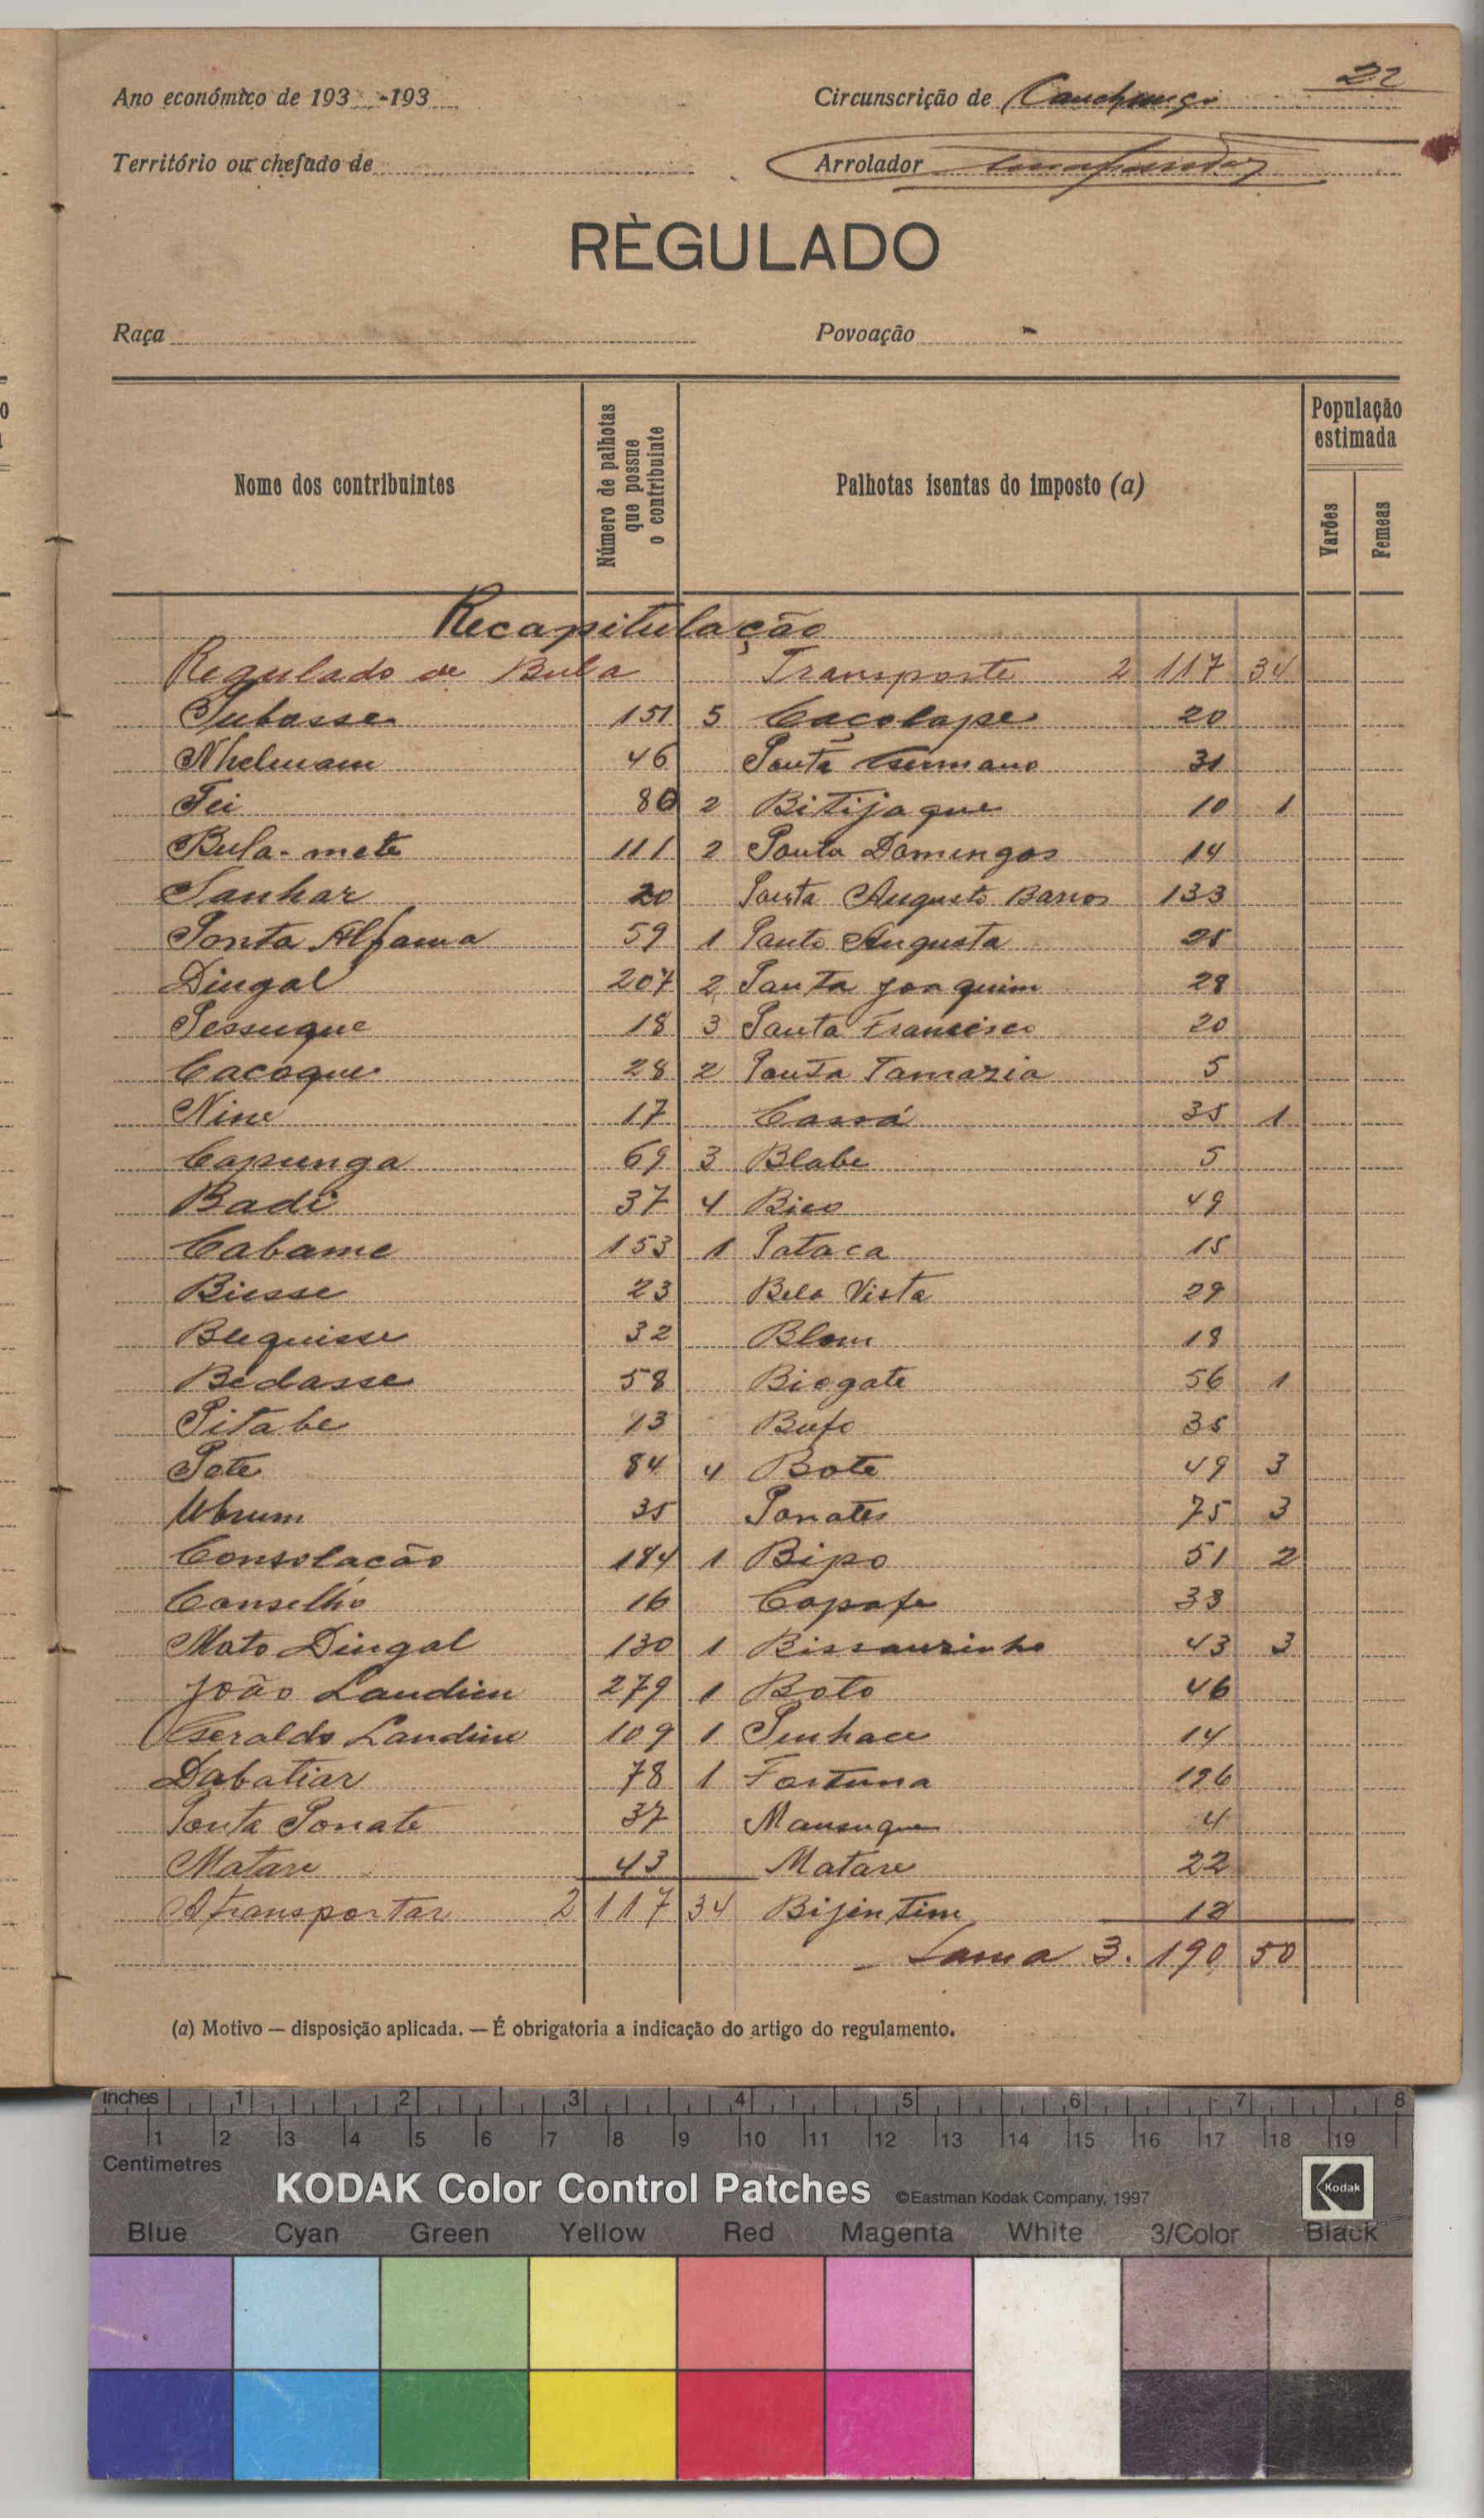 22
Ano económico de 193 -193
Circunscrição de Canchungo
Território ou chefado de
Arrolador
RÈGULADO
Raça
Povoação
Nome dos contribuintes
Número de palhotas que possue o contribuinte
Palhotas isentas do imposto (a)
População estimada
Varões
Femeas
Recapitulação
Regulado de Bula Transporte 2 117 34
151 5 Caçolape 20
Nhelmam 46 Ponta Germano 31
Tei 80 2 Bitijaque 10 1
Bula-mete 111 2 Ponta Domingos 14
20 Ponta Augusto Barros 133
Ponta Alfama 59 1 Ponta Augusta
Dingal 207 2 Ponta Joaquim 28
Pessuque 18 3 Ponta Francisco 20
Cacoque 28 2 Ponta Tamazia 5
Nine 17 35 1
Capunga 69 3 Blabe 5
Badi 37 4 Bico 49
Cabame 153 1 Pataca 15
Biesse 23 Bela Vista 29
Beequisse 32 Blom 18
Bedasse 58 Biogate 56 1
Pitabe 13 Bufo 35
Pete 84 4 Bote 49 3
35 Ponates 75 3
Consolacão 184 1 Bipo 51 2
Conselho 16 Capafe 33
Mato Dingal 130 1 Bissaurinho 43 3
João Landim 279 1 Boto 46
Geraldo Landim 109 1 14
Dabatiar 78 1 Fortuna
Ponta Ponate 37 4
Matare 43 Matare 22
A transportar 2 117 34 Bijentim
Soma 3. 190 50
(a) Motivo — disposição aplicada. — É obrigatoria a indicação do artigo do regulamento.
inches 1 2 3 4 5 6 7 8
1 2 3 4 5 6 7 8 9 10 11 12 13 14 15 16 17 18 19
Centimetres
KODAK Color Control Patches ©Eastman Kodak Company, 1997 Kodak
Blue Cyan Green Yellow Red Magenta White 3/Color Black